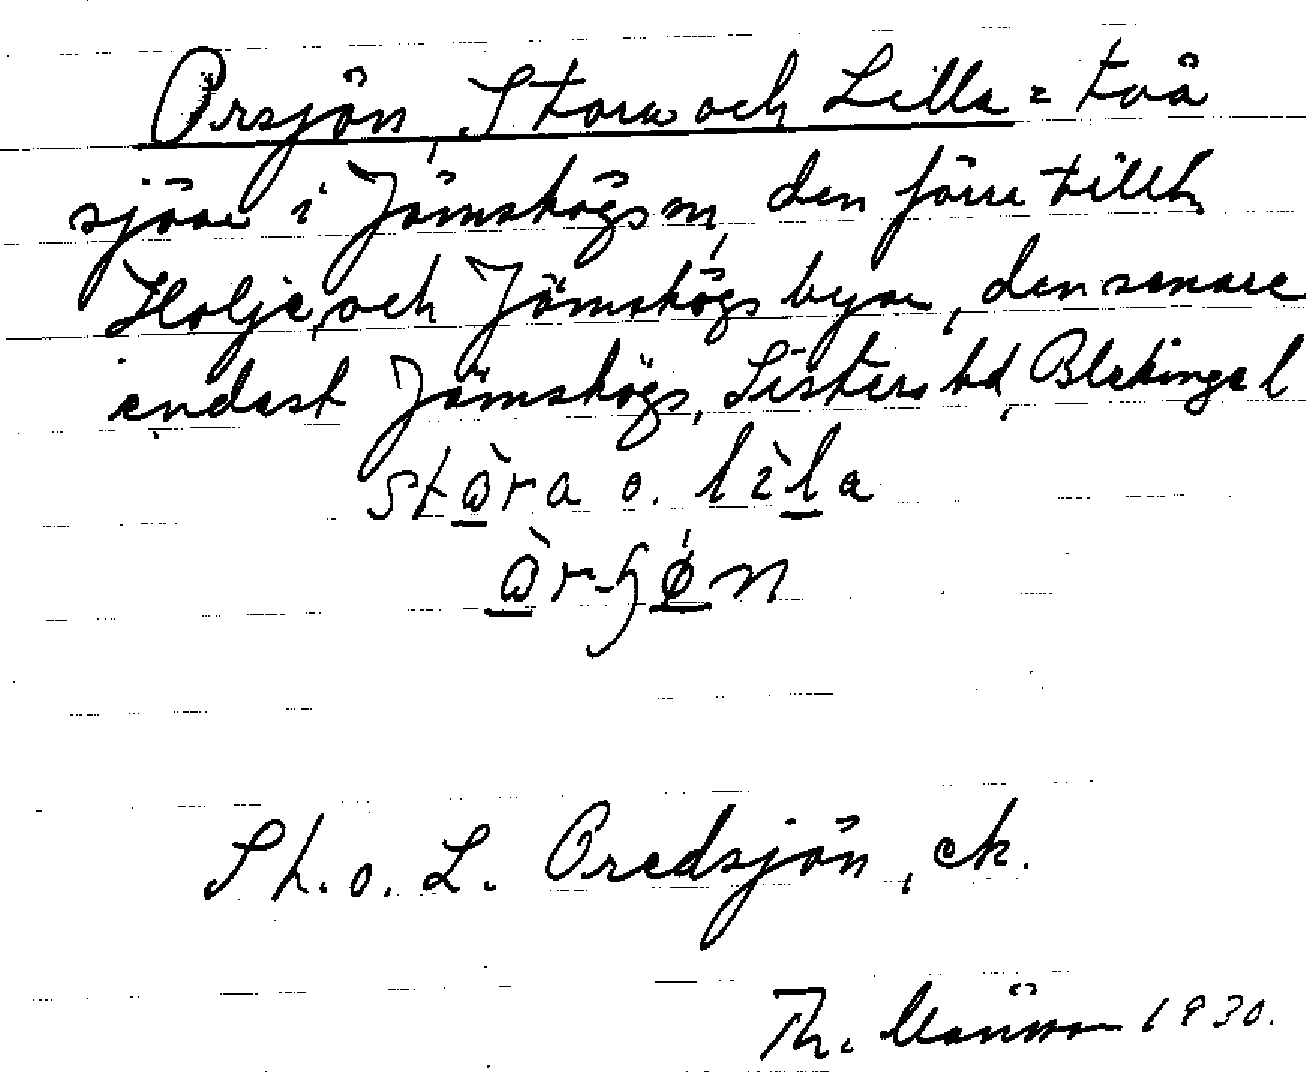 Orsjön, Stora och Lilla = två
sjöar i Jämshögs sn, den förre tillh
Holje, och Jämshögs byar, den senare
endast Jämshögs, Listers hd, Blekinge l
stora o. lila
Sh. o. L. Oredsjön, ek.
Th. 1930.